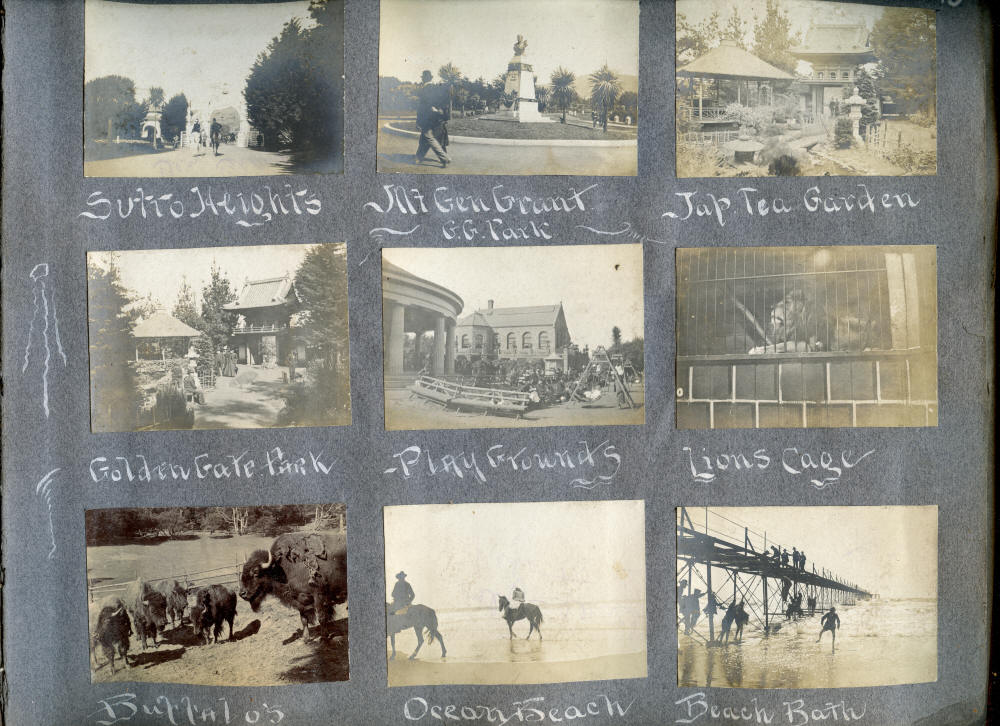 Sutro Heights
Mt Gen Grant
G.G. Park
Jap. Tea Garden
Golden Gate Park
Play Grounds
Lions Cage
Buffalo's
Ocean Beach
Beach Bath